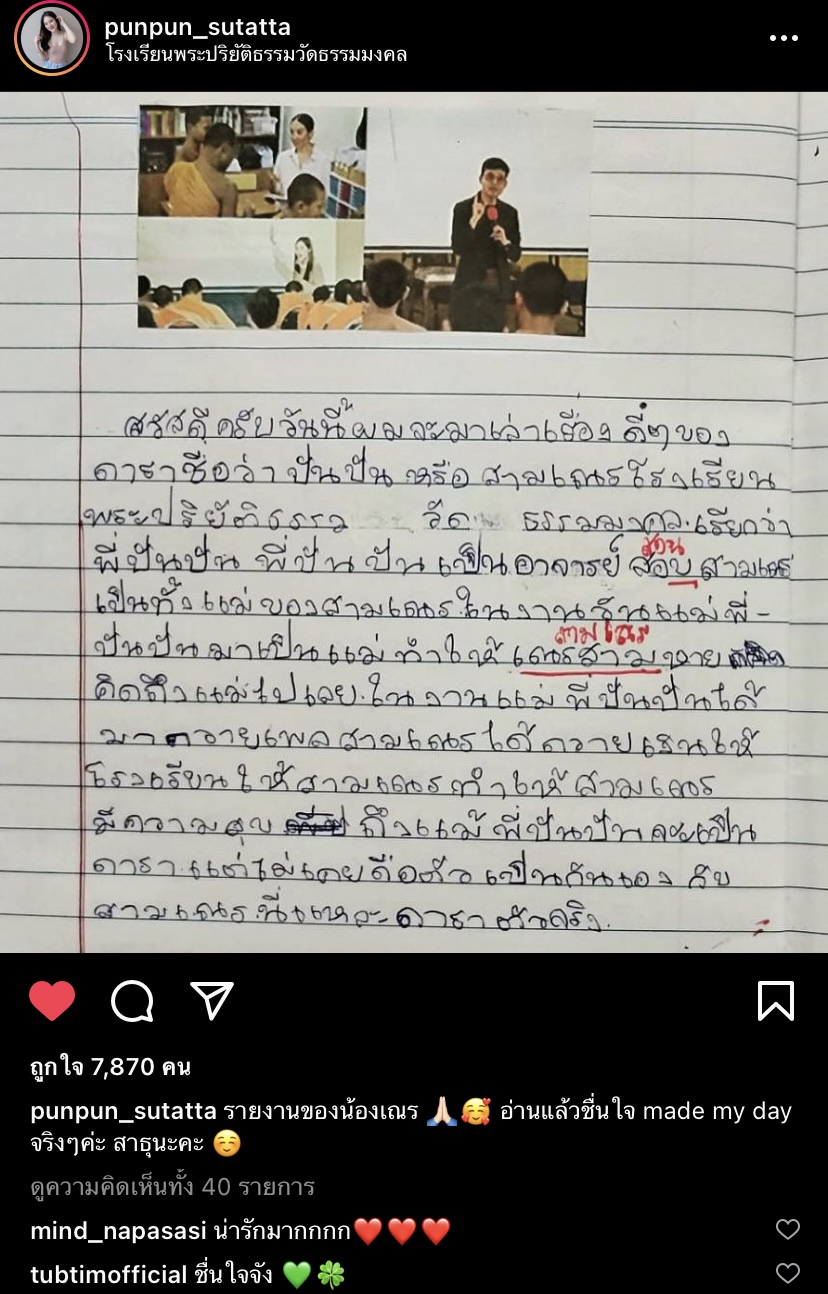 punpun_sutatta
โรงเรียนพระปริยัติธรรมวัดธรรมมงคล
สวัสดีครับวันนี้ผมจะมาเล่าเรื่อง ดีๆของ
ดาราชื่อว่า ปันปัน หรือ สามเณรโรงเรียน
พระปริยัติธรรม วัด ธรรมมงคล.เรียกว่า
พี่ปันปัน พี่ปัน ปันเป็นอาจารย์ สอบ สามเณร
สอน
เป็นทั้งแม่ของสามเณร.ในงานวันแม่พี่-
สามเณร
ปันปันมาเป็นแม่ทำให้เณรสามหาย
คิดถึงแม่ไปเลย.ในงานแม่ พี่ปันปันได้
มาถวายเพลสามเณรได้ถวาย ให้
โรงเรียนให้สามเณรทำให้สามเณร
มีความสุข ถึงแม้พี่ปันปันจะเป็น
ดารา.แต่ไม่เคยถือตัวเป็นกันเอง กับ
สามเณร.นี่แหละดาราตัวจริง.
ถูกใจ 7,870 คน
punpun_sutatta รายงานของน้องเณร 🙏🏻🥰 อ่านแล้วชื่นใจ made my day
จริงๆค่ะ สาธุนะคะ ☺️
ดูความคิดเห็นทั้ง 40 รายการ
mind_napasasi น่ารักมากกกก❤️❤️❤️
tubtimofficial ชื่นใจจัง 💚🍀